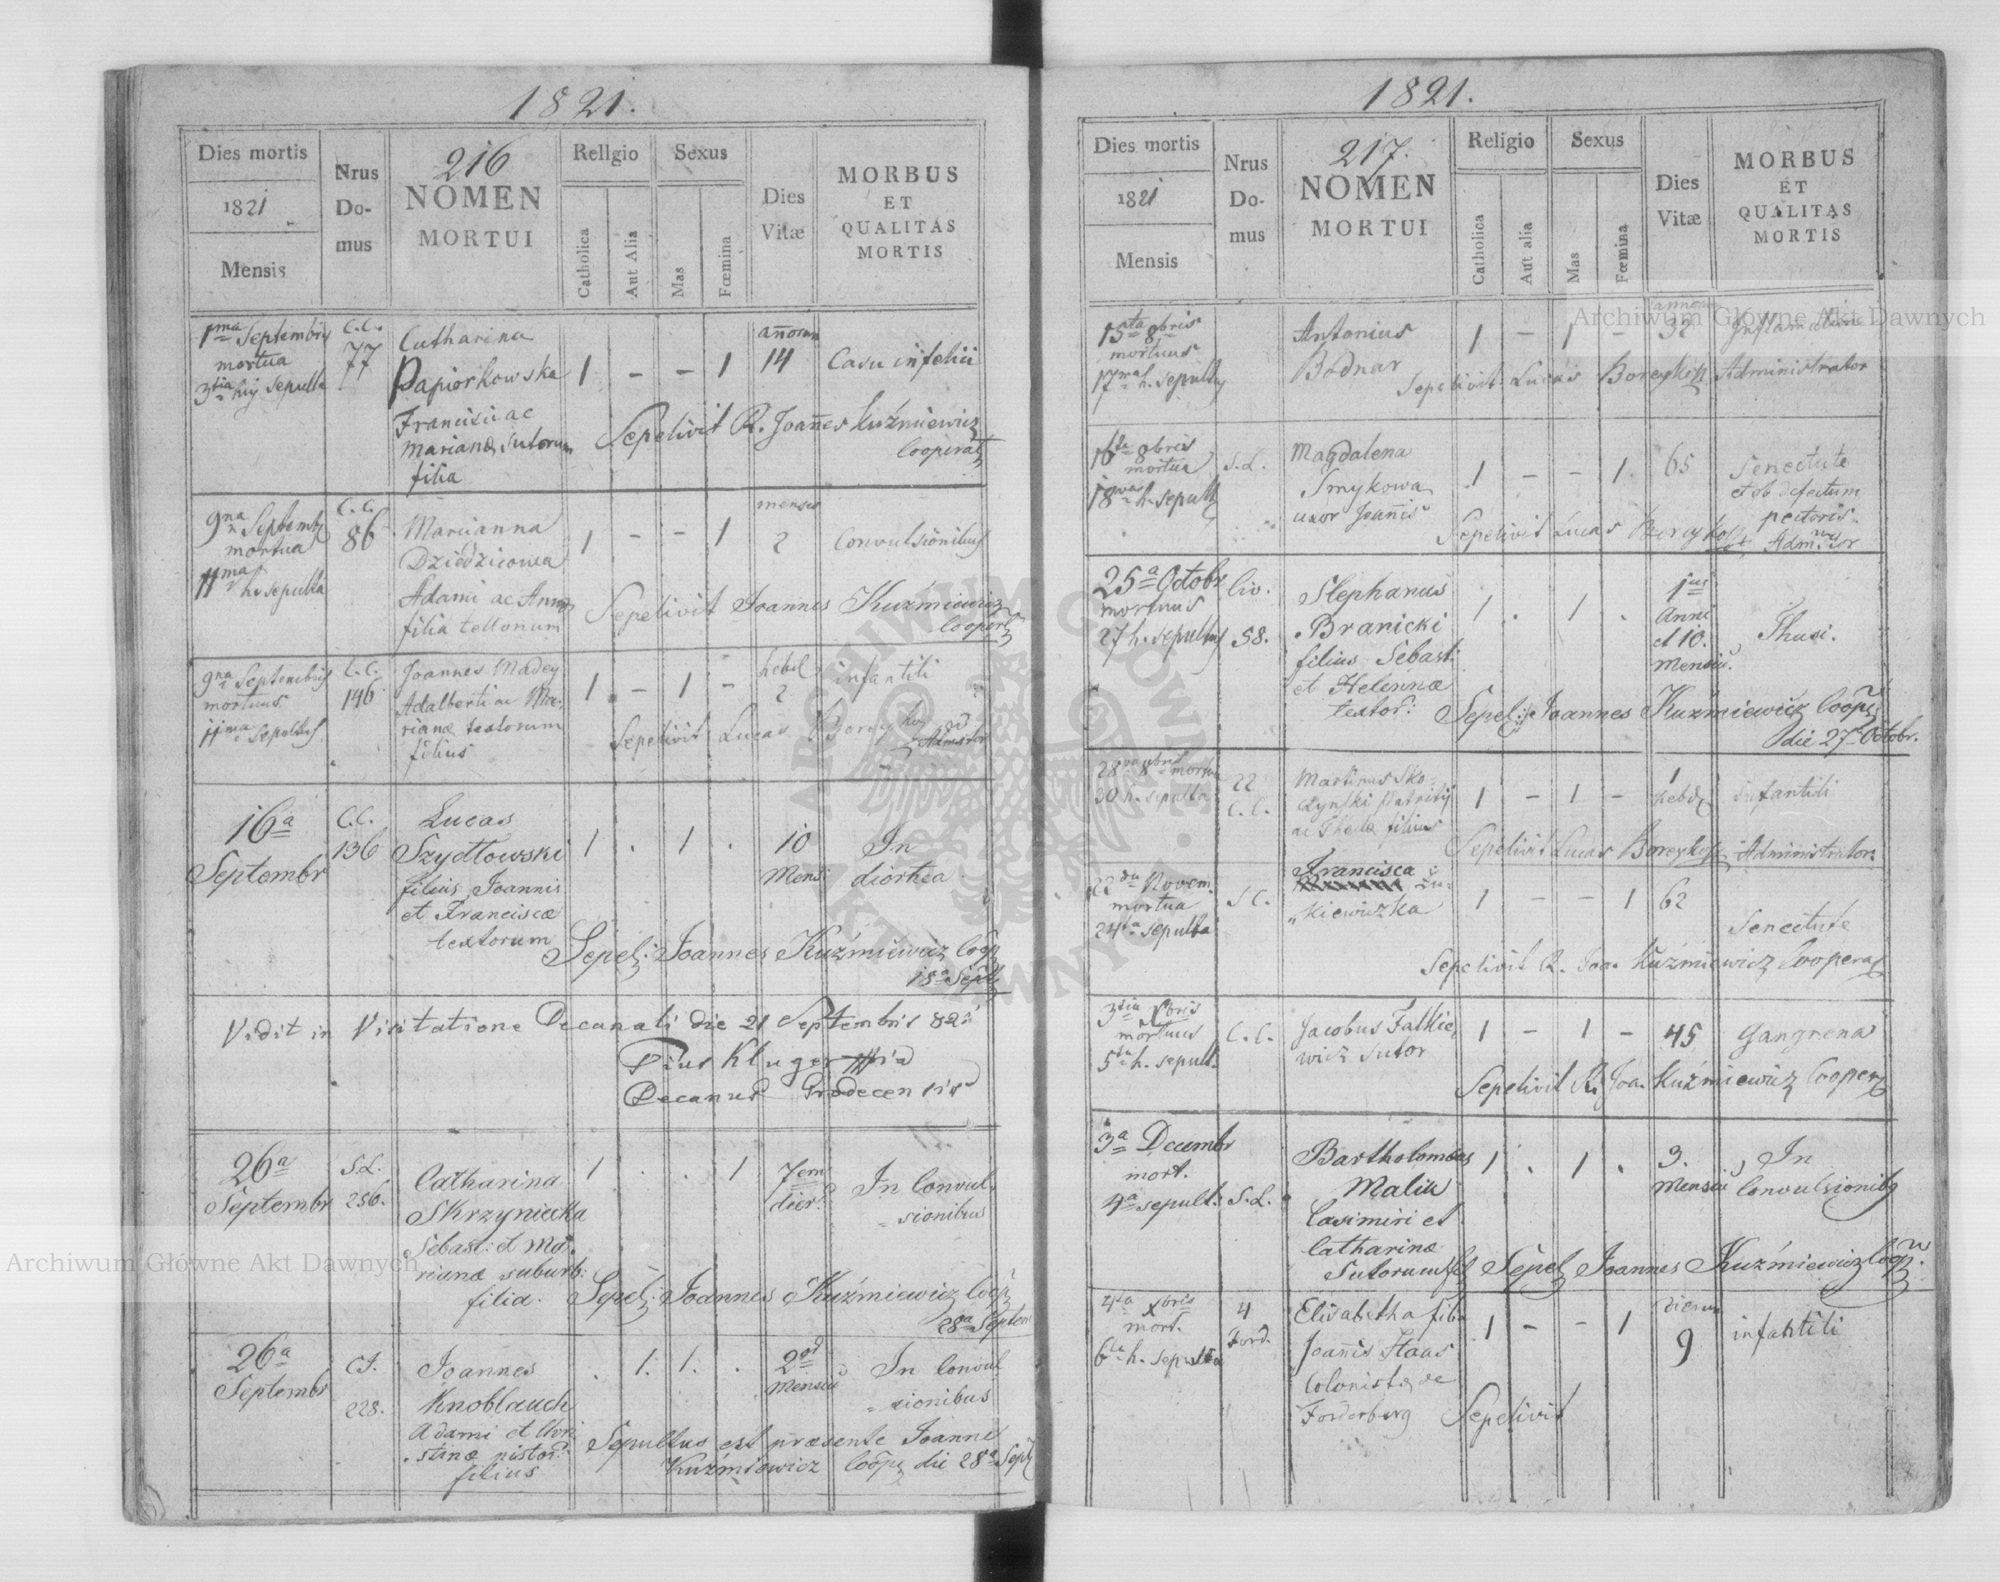 1821.
Dies mortis
1821
Mensis
Nrus
Do-
mus
216
NOMEN
MORTUI
Religio
Catholica
Aut Alia
Sexus
Mas
Fœmina
Dies
Vitæ
MORBUS
ET
QUALITAS
MORTIS
1ma Septembris
mortua
3tia hujus sepulta
C.C.
77
Catharina
Papiorkowska
Francisci ac
Marianæ Sutorum
filia
1 - - 1
annorum
14
Casu infelici
Sepelivit R. Joannes Kuźmiewicz
Cooperat
9na Septemb
mortua
11ma h. sepulta
C.C.
86
Marianna
Dziedzicowa
Adami ac Annæ
filia tellonum
1 - - 1
menses
2
Convulsionibus
Sepelivit Joannes Kuźmiewicz
Cooper
9na Septembris
mortuus
11ma Sepultus
C.C.
146
Joannes Madey
Adalberti ac Ma-
rianæ textorum
filius
1 - 1 -
hebd
2
infantili
Sepelivit Lucas
Admstor
16a
Septembr
C.C.
136
Lucas
Szydłowski
filius Joannis
et Franciscæ
textorum
1 . 1 .
10
Mens:
In
diorhea
Sepel: Joannes Kuźmiewicz Coop
18a Sept
Vidit in Visitatione Decanali die 21 Septembris 821
Pius Kluger
Decanus Grodecensis
26a
Septembr
S.L.
256.
Catharina
Skrzyniecka
Sebast: et Ma-
rianæ suburb:
filia.
1 . . 1
7em
dier:
In Convul
sionibus
Sepel: Joannes Kuźmiewicz Coop
28a Septem
26a
Septembr
228.
Joannes
Knoblauch
Adami et Chri
stinæ pistor:
filius
. 1. 1. .
2od
Mensiu
In Convul
sionibus
Sepultus est præsente Joanne
Kuźmiewicz Coop die 28a Sept
1821.
Dies mortis
1821
Mensis
Nrus
Do-
mus
217.
NOMEN
MORTUI
Religio
Catholica
Aut alia
Sexus
Mas
Fœmina
Dies
Vitæ
MORBUS
ET
QUALITAS
MORTIS
15ta 8bris
mortuus
17ma h. sepult
Antonius
Bodnar
1 - 1 -
annorum
32
Sepelivit Lucas Administrator
16ta 8bris
mortua
18va h. sepult
S.L.
Magdalena
Smykowa
uxor Joannis
1 - - 1
65
Senectute
et ob defectum
pectoris
Sepelivit Lucas
25a Octobr
mortuus
27 h. sepultus
Civ.
58.
Stephanus
Branicki
filius Sebast:
et Helennæ
textor:
1 . 1 .
1us
Anni
et 10.
Mensiu.
Thusi.
Sepel: Joannes Kuźmiewicz Coop
die 27a Octobr.
30 h. sepulta
22
C.C.
Martinus Sko-
filius
1 - 1 -
1
hebd
Infantili
Sepelivit Lucas Administrator
22da Novem.
mortua
24ta sepulta
S C.
Francisca
kiewiczka
1 - - 1
62
Senectute
Sepelivit R. Joa. Kuźmiewicz Coopera
3tia Xbris
mortuus
5ta h. sepult.
C.C.
Jacobus Falkie
wicz Sutor
1 - 1 -
45
Gangrena
Sepelivit R. Joa. Kuźmiewicz Cooper
3a Decembr
mort.
4a sepult:
S.L.
Bartholomeus
Malic
Casimiri et
Catharinæ
Sutorum
1 . 1 .
3.
Mensiu
In
Convulsionib
Sepel Joannes Kuźmiewicz Coop.
4ta Xbris
mort.
6ta h. sepulta
4
Ford.
Elisabetha filia
Joannis Haas
Colonistæ de
Forderberg
1 - - 1
dierum
9
infantili
Sepelivit
Archiwum Główne Akt Dawnych
Archiwum Główne Akt Dawnych
ARCHIWUM GŁÓWNE AKT DAWNYCH